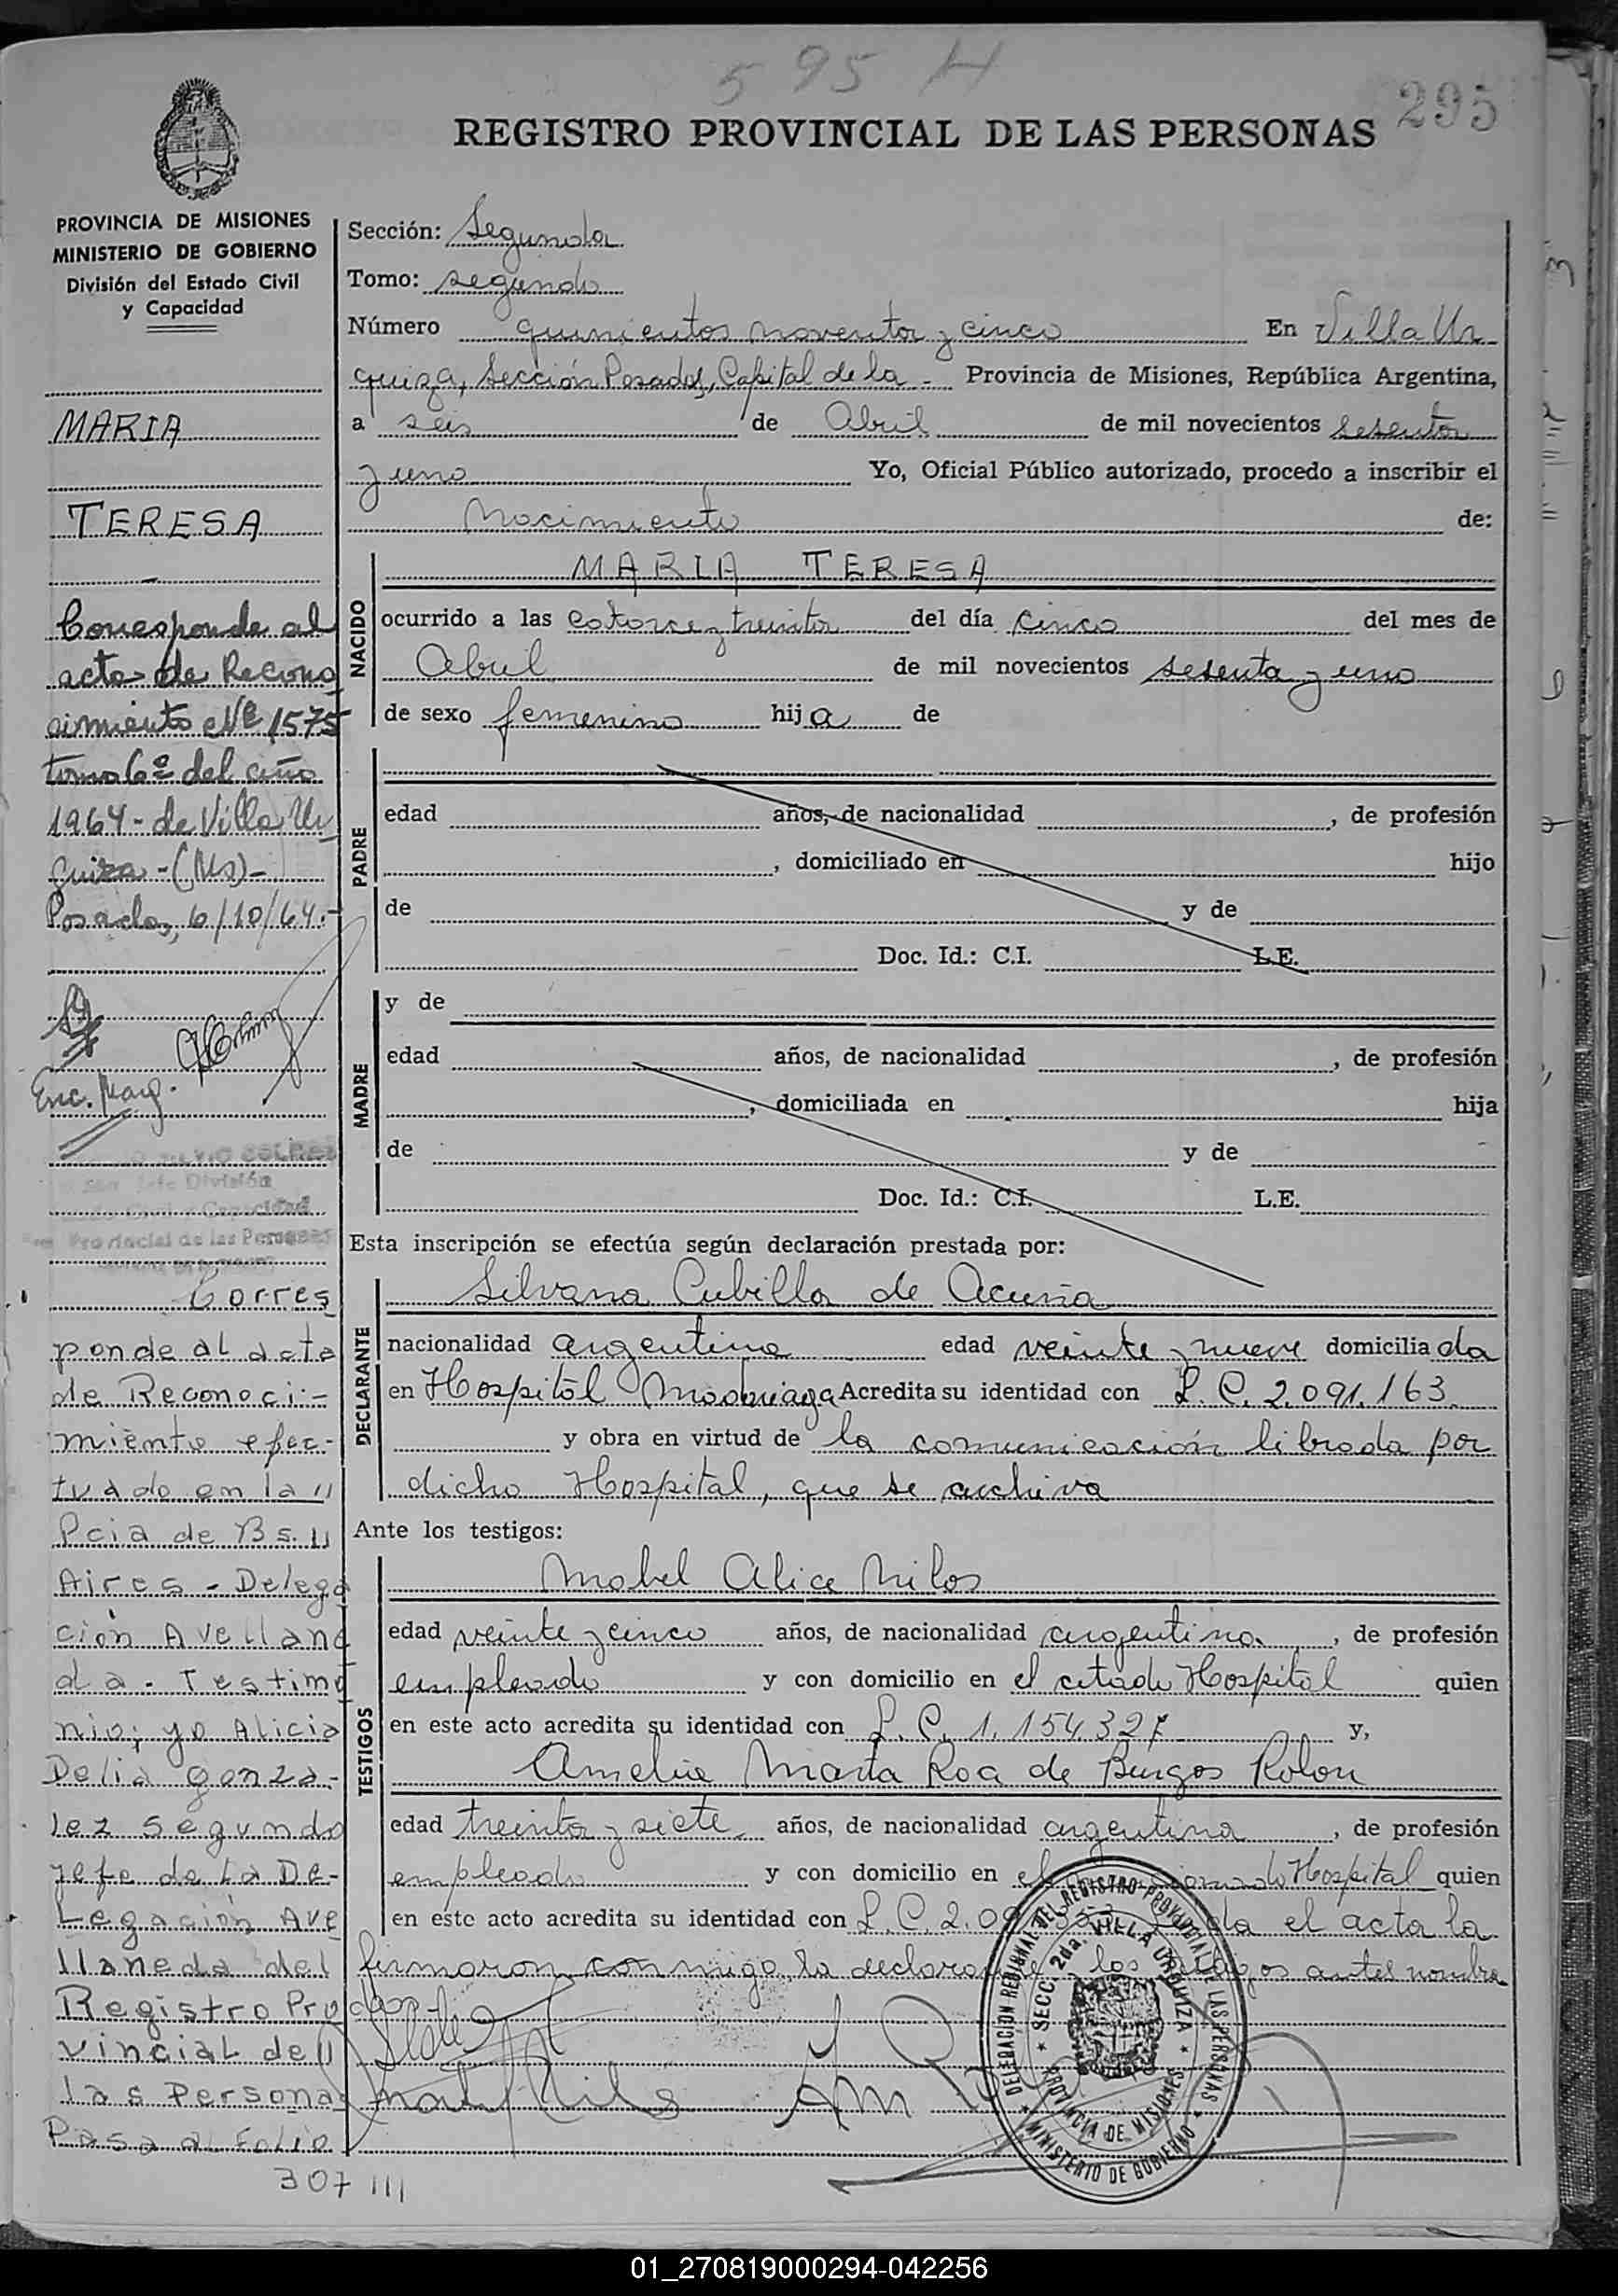 595 H
295
REGISTRO PROVINCIAL DE LAS PERSONAS
PROVINCIA DE MISIONES
MINISTERIO DE GOBIERNO
División del Estado Civil
y Capacidad
MARIA
TERESA
Corresponde al
acta de Recono
cimiento Nº 1575
tomo 6º del año
1964 - de Villa Ur
quiza - (Ms) -
Posadas, 6/10/64.-
Enc. Marg.
División
Civil y Capacidad
Provincial de las Personas
Corres
ponde al acta
de Reconoci-
miento efec-
tuado en la
Pcia de Bs.
Aires - Delega
ción Avellane
da. Testimo
nio; yo Alicia
Delia gonza-
lez segundo
jefe de La De-
Legación Ave
llaneda del
Registro Pro
vincial de
las Personas
Pasa al Folio
307
Sección: Segunda
Tomo: segundo
Número quinientos noventa y cinco En Villa Ur
quiza, Sección Posadas, Capital de la - Provincia de Misiones, República Argentina,
a seis de Abril de mil novecientos sesenta
y uno Yo, Oficial Público autorizado, procedo a inscribir el
Nacimiento de:
NACIDO
MARIA TERESA
ocurrido a las catorce y treinta del día cinco del mes de
Abril de mil novecientos sesenta y uno
de sexo femenino hija de
PADRE
edad años, de nacionalidad , de profesión
, domiciliado en hijo
de y de
Doc. Id.: C.I. L.E.
MADRE
y de
edad años, de nacionalidad , de profesión
, domiciliada en hija
de y de
Doc. Id.: C.I. L.E.
Esta inscripción se efectúa según declaración prestada por:
DECLARANTE
Silvana Cubilla de Acuña
nacionalidad argentina edad veinte y nueve domiciliada
en Hospital Madariaga Acredita su identidad con L.C. 2.091.163
y obra en virtud de la comunicación librada por
dicho Hospital, que se archiva
Ante los testigos:
TESTIGOS
Mabel Alice Milos
edad veinte y cinco años, de nacionalidad argentina, de profesión
empleada y con domicilio en el citado Hospital quien
en este acto acredita su identidad con L.C. 1.154.327 y,
Amelia Marta Roa de Burgos Rolon
edad treinta y siete años, de nacionalidad argentina, de profesión
empleada y con domicilio en el Hospital quien
en este acto acredita su identidad con L.C. 2.09 da el acta la
firmaron conmigo, la declarante los testigos antes nombra
dos
DELEGACION REGIONAL DEL REGISTRO PROVINCIAL DE LAS PERSONAS
SECC. 2da. VILLA URQUIZA
PROVINCIA DE MISIONES
MINISTERIO DE GOBIERNO
01_270819000294-042256